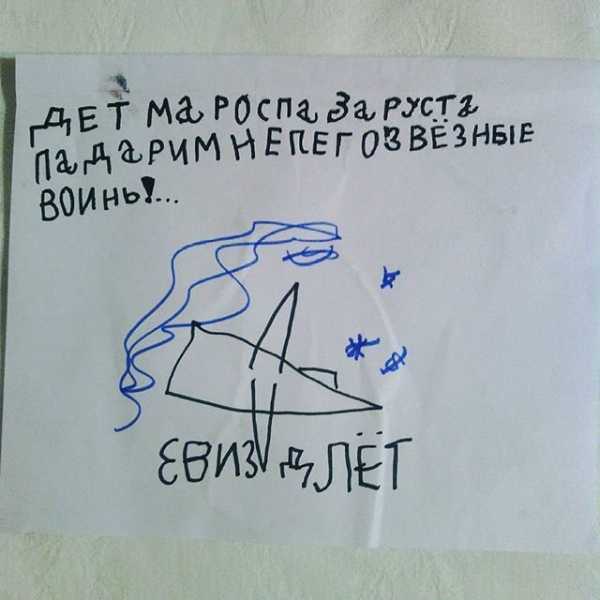 ДЕТ МаРОСПа ЗаРУСТа
ПаДаРИМНЕПЕГО ЗВЁЗНЫЕ
ВОИНЬ!...
ЕВИЗДЛЁТ